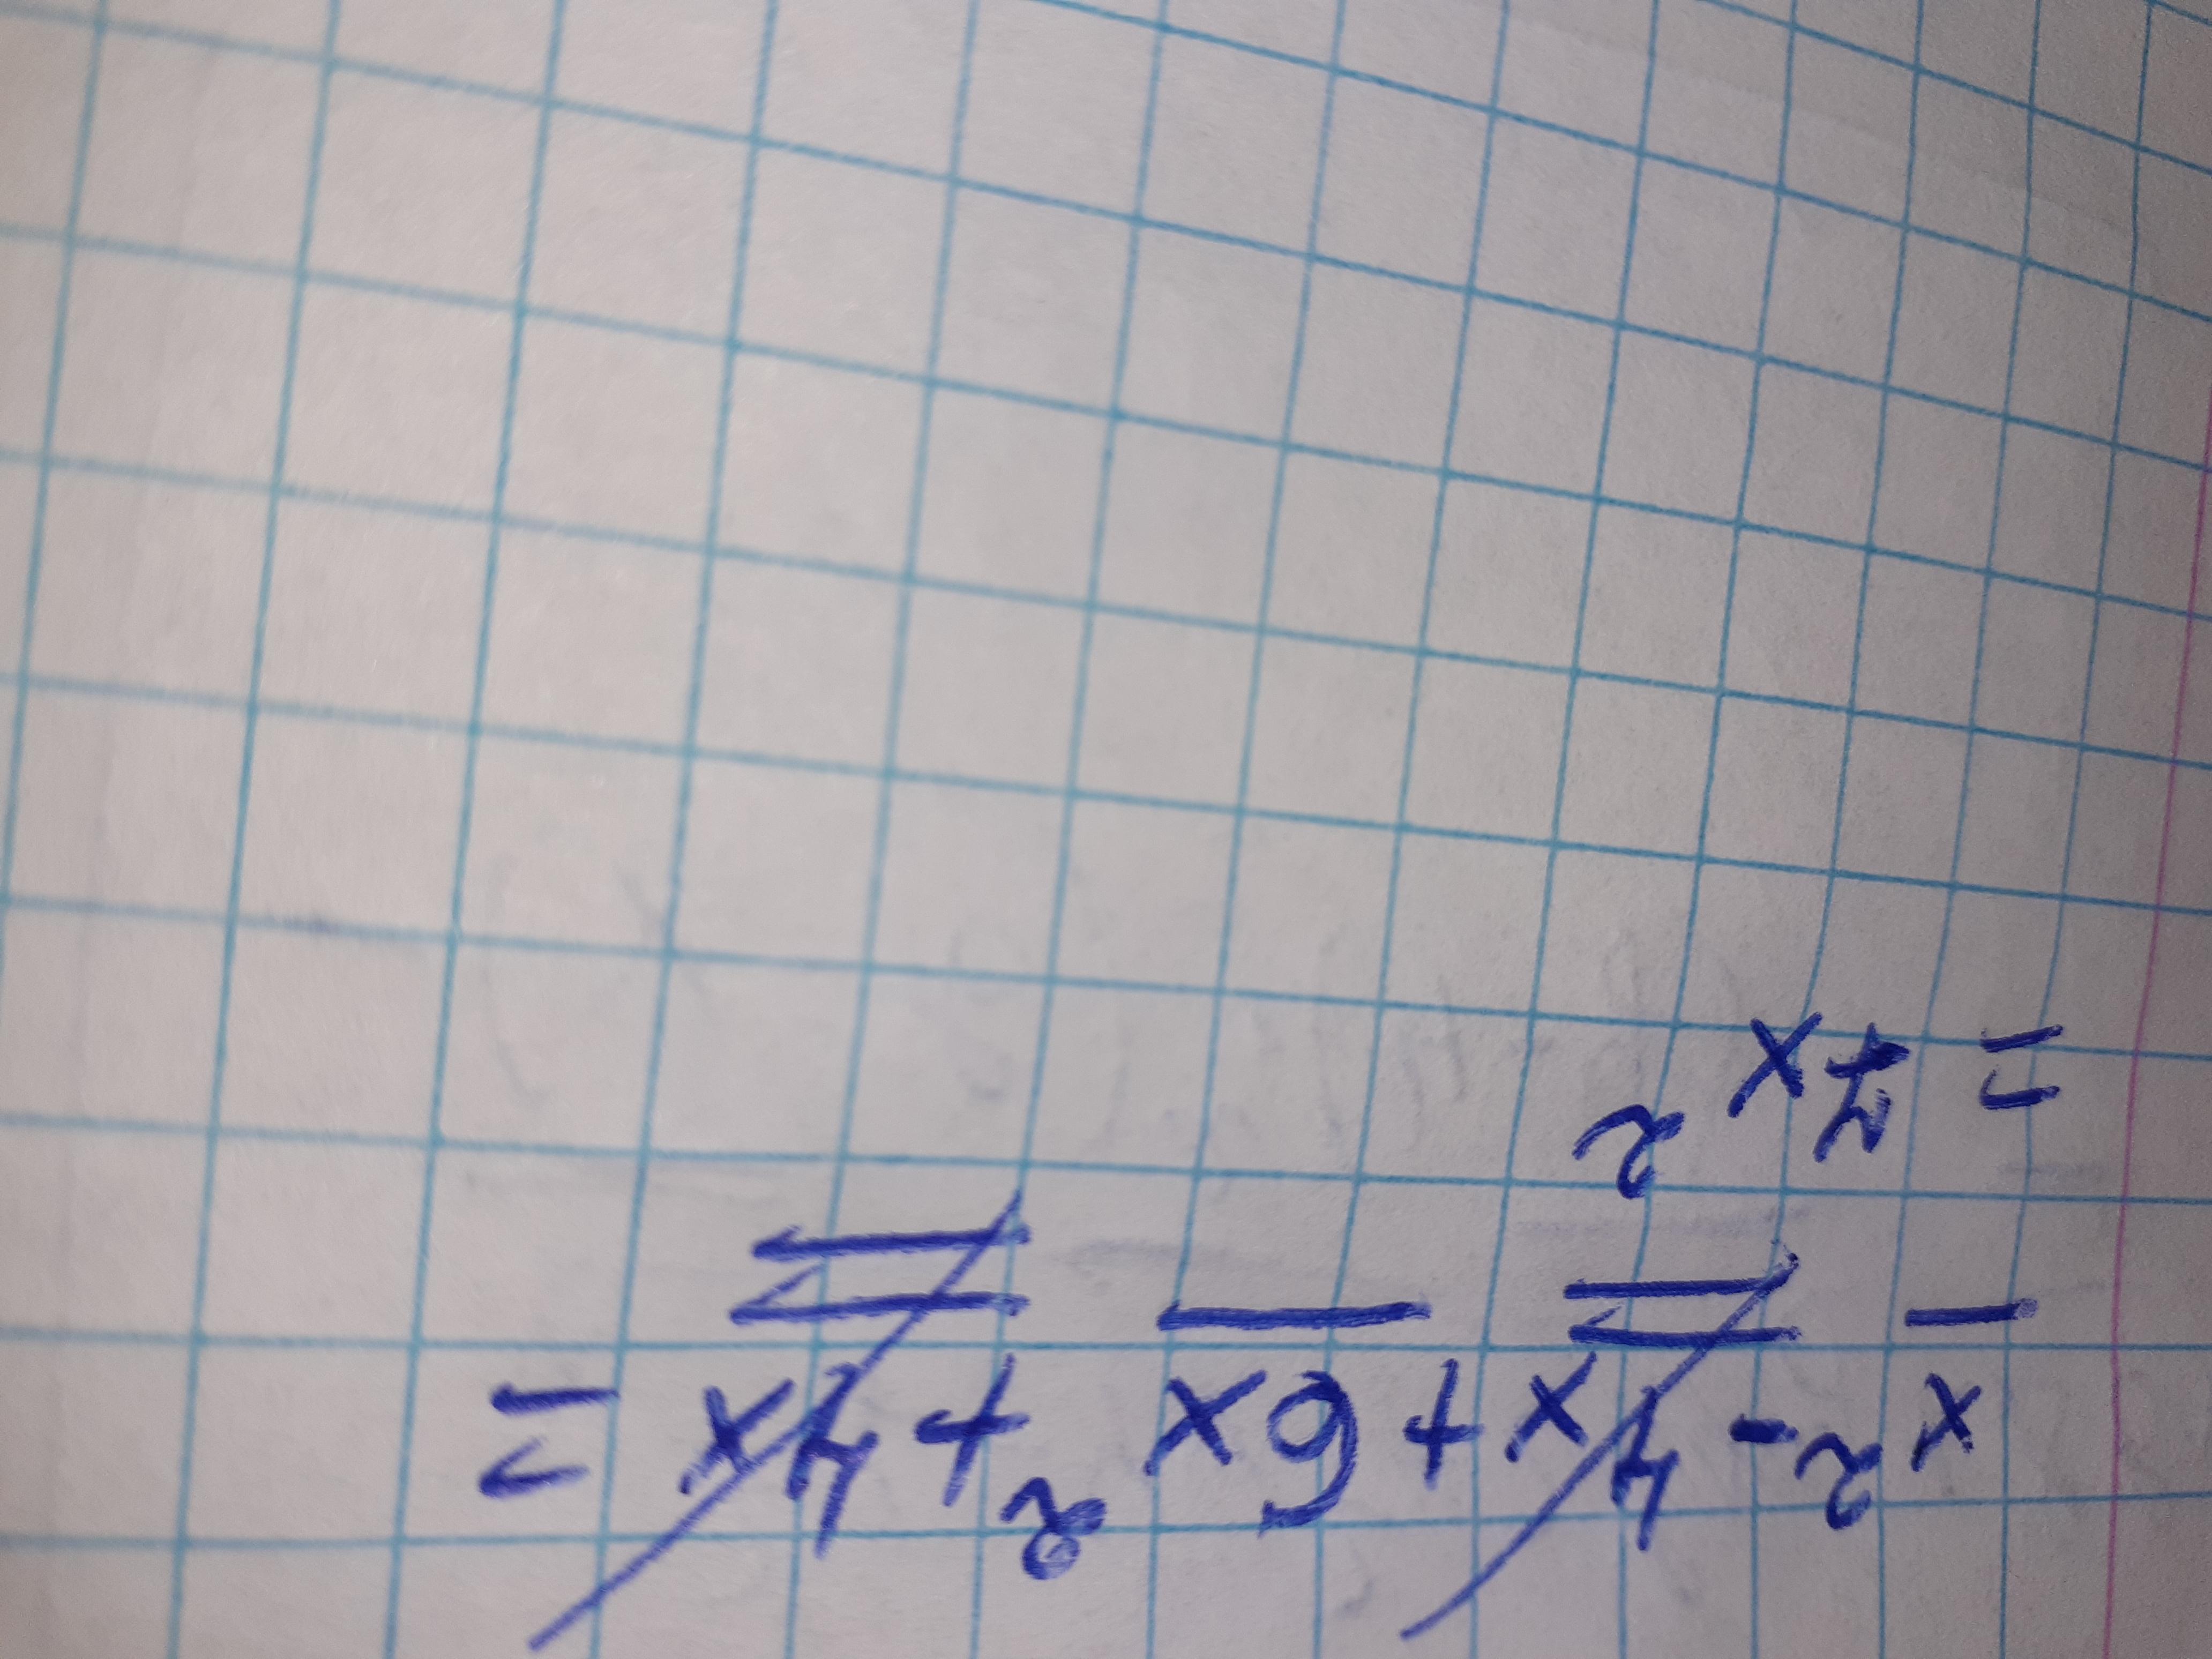 x² - 4x + 6x² + 4x =
= 7x²